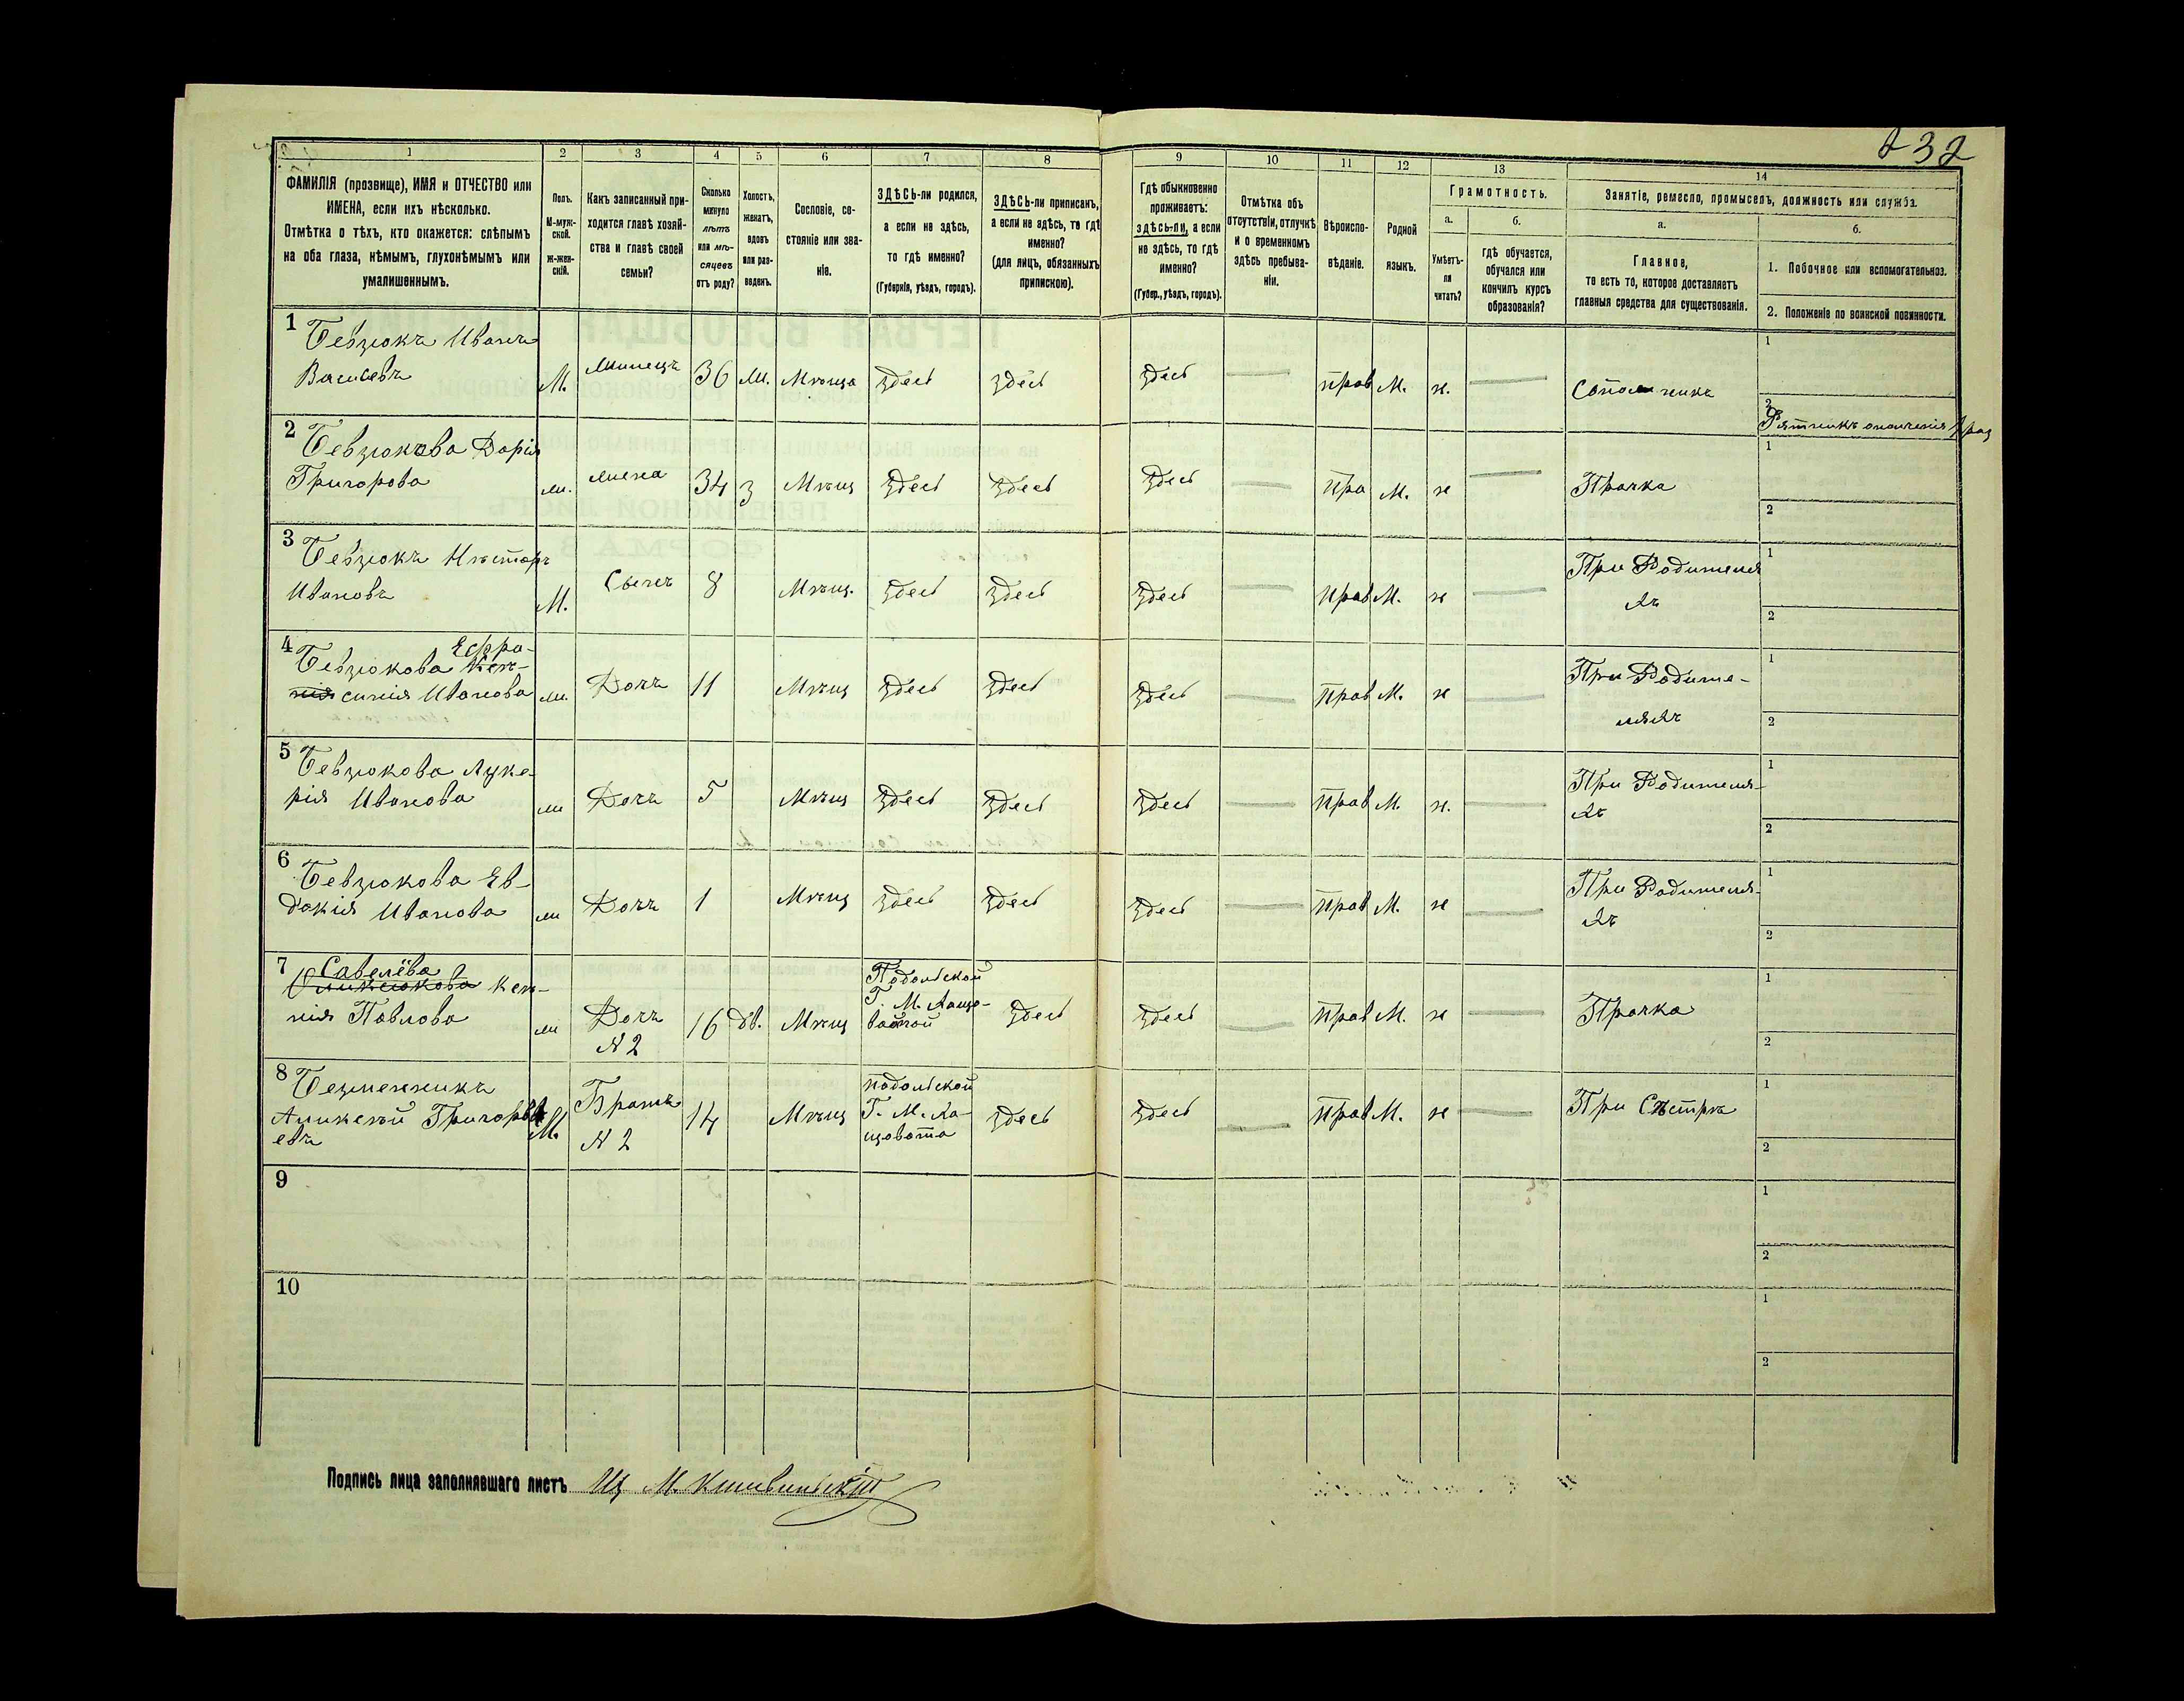 232
1 2 3 4 5 6 7 8 9 10 11 12 13 14
ФАМИЛІЯ (прозвище), ИМЯ и ОТЧЕСТВО или
ИМЕНА, если ихъ нѣсколько.
Отмѣтка о тѣхъ, кто окажется: слѣпымъ
на оба глаза, нѣмымъ, глухонѣмымъ или
умалишеннымъ.
Полъ.
М-муж-
ской.
ж-жен-
скій.
Какъ записанный при-
ходится главѣ хозяй-
ства и главѣ своей
семьи?
Сколько
минуло
лѣтъ
или мѣ-
сяцевъ
отъ роду?
Холостъ,
женатъ,
вдовъ
или раз-
веденъ.
Сословіе, со-
стояніе или зва-
ніе.
ЗДѢСЬ-ли родился,
а если не здѣсь,
то гдѣ именно?
(Губернія, уѣздъ, городъ).
ЗДѢСЬ-ли приписанъ,
а если не здѣсь, то гдѣ
именно?
(для лицъ, обязанныхъ
припискою).
Гдѣ обыкновенно
проживаетъ:
здѣсь-ли, а если
не здѣсь, то гдѣ
именно?
(Губер., уѣздъ, городъ).
Отмѣтка объ
отсутствіи, отлучкѣ
и о временномъ
здѣсь пребыва-
ніи.
Вѣроиспо-
вѣданіе.
Родной
языкъ.
Грамотность.
а.
Умѣетъ-
ли
читать?
б.
Гдѣ обучается,
обучался или
кончилъ курсъ
образованія?
Занятіе, ремесло, промыселъ, должность или служба.
а.
Главное,
то есть то, которое доставляетъ
главныя средства для существованія.
б.
1. Побочное или вспомогательное.
2. Положеніе по воинской повинности.
1 Бевзюкъ Иванъ
Васильевъ
М. 36 Мѣща здесь здесь здесь — прав М. н. — 1
2
2 Бевзюкова Дарія
Григорова
34 З Мѣщ здесь здесь здесь — пра М. н — Прачка 1
2
3 Бевзюкъ Нѣсторъ
Ивановъ
М. Сынъ 8 Мѣщ. здесь здесь здесь — прав М. н — При Родителя
хъ 1
2
4 Бевзюкова Ефро-
синія Иванова
Дочь 11 Мѣщ здесь здесь здесь — прав М. н — При Родите-
ляхъ 1
2
5 Бевзюкова Луке-
рія Иванова
Дочь 5 Мѣщ здесь здесь здесь — прав М. н. — При Родителя-
хъ 1
2
6 Бевзюкова Ев-
докія Иванова
Дочь 1 Мѣщ здесь здесь здесь — прав М. н — При Родителя-
хъ 1
2
7 Савелёва Ксе-
нія Павлова
Дочь
N 2 16 дв. Мѣщ Подольской
Г. М. здесь здесь — прав М. н — Прачка 1
2
8
Григорь
евъ
М. Братъ
N 2 14 Мѣщ подольской
Г. М. Ха-
щовата здесь здесь — прав М. н — При Сѣстрѣ 1
2
9 1
2
10 1
2
Подпись лица заполнявшаго листъ